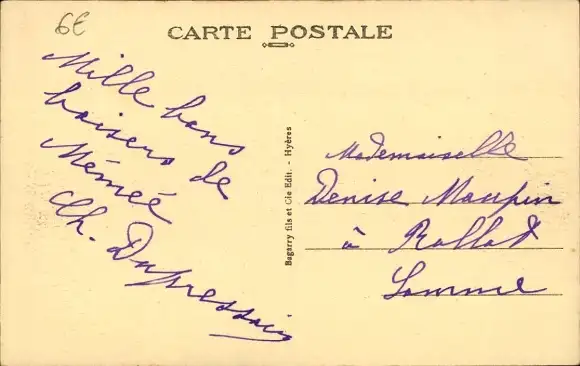 6€
CARTE POSTALE
Mille bons
baisers de
Mémée
Ch. Dupressoir
Bagarry fils et Cie Edit. - Hyères
Mademoiselle
Denise Maupin
à Rollot
Somme